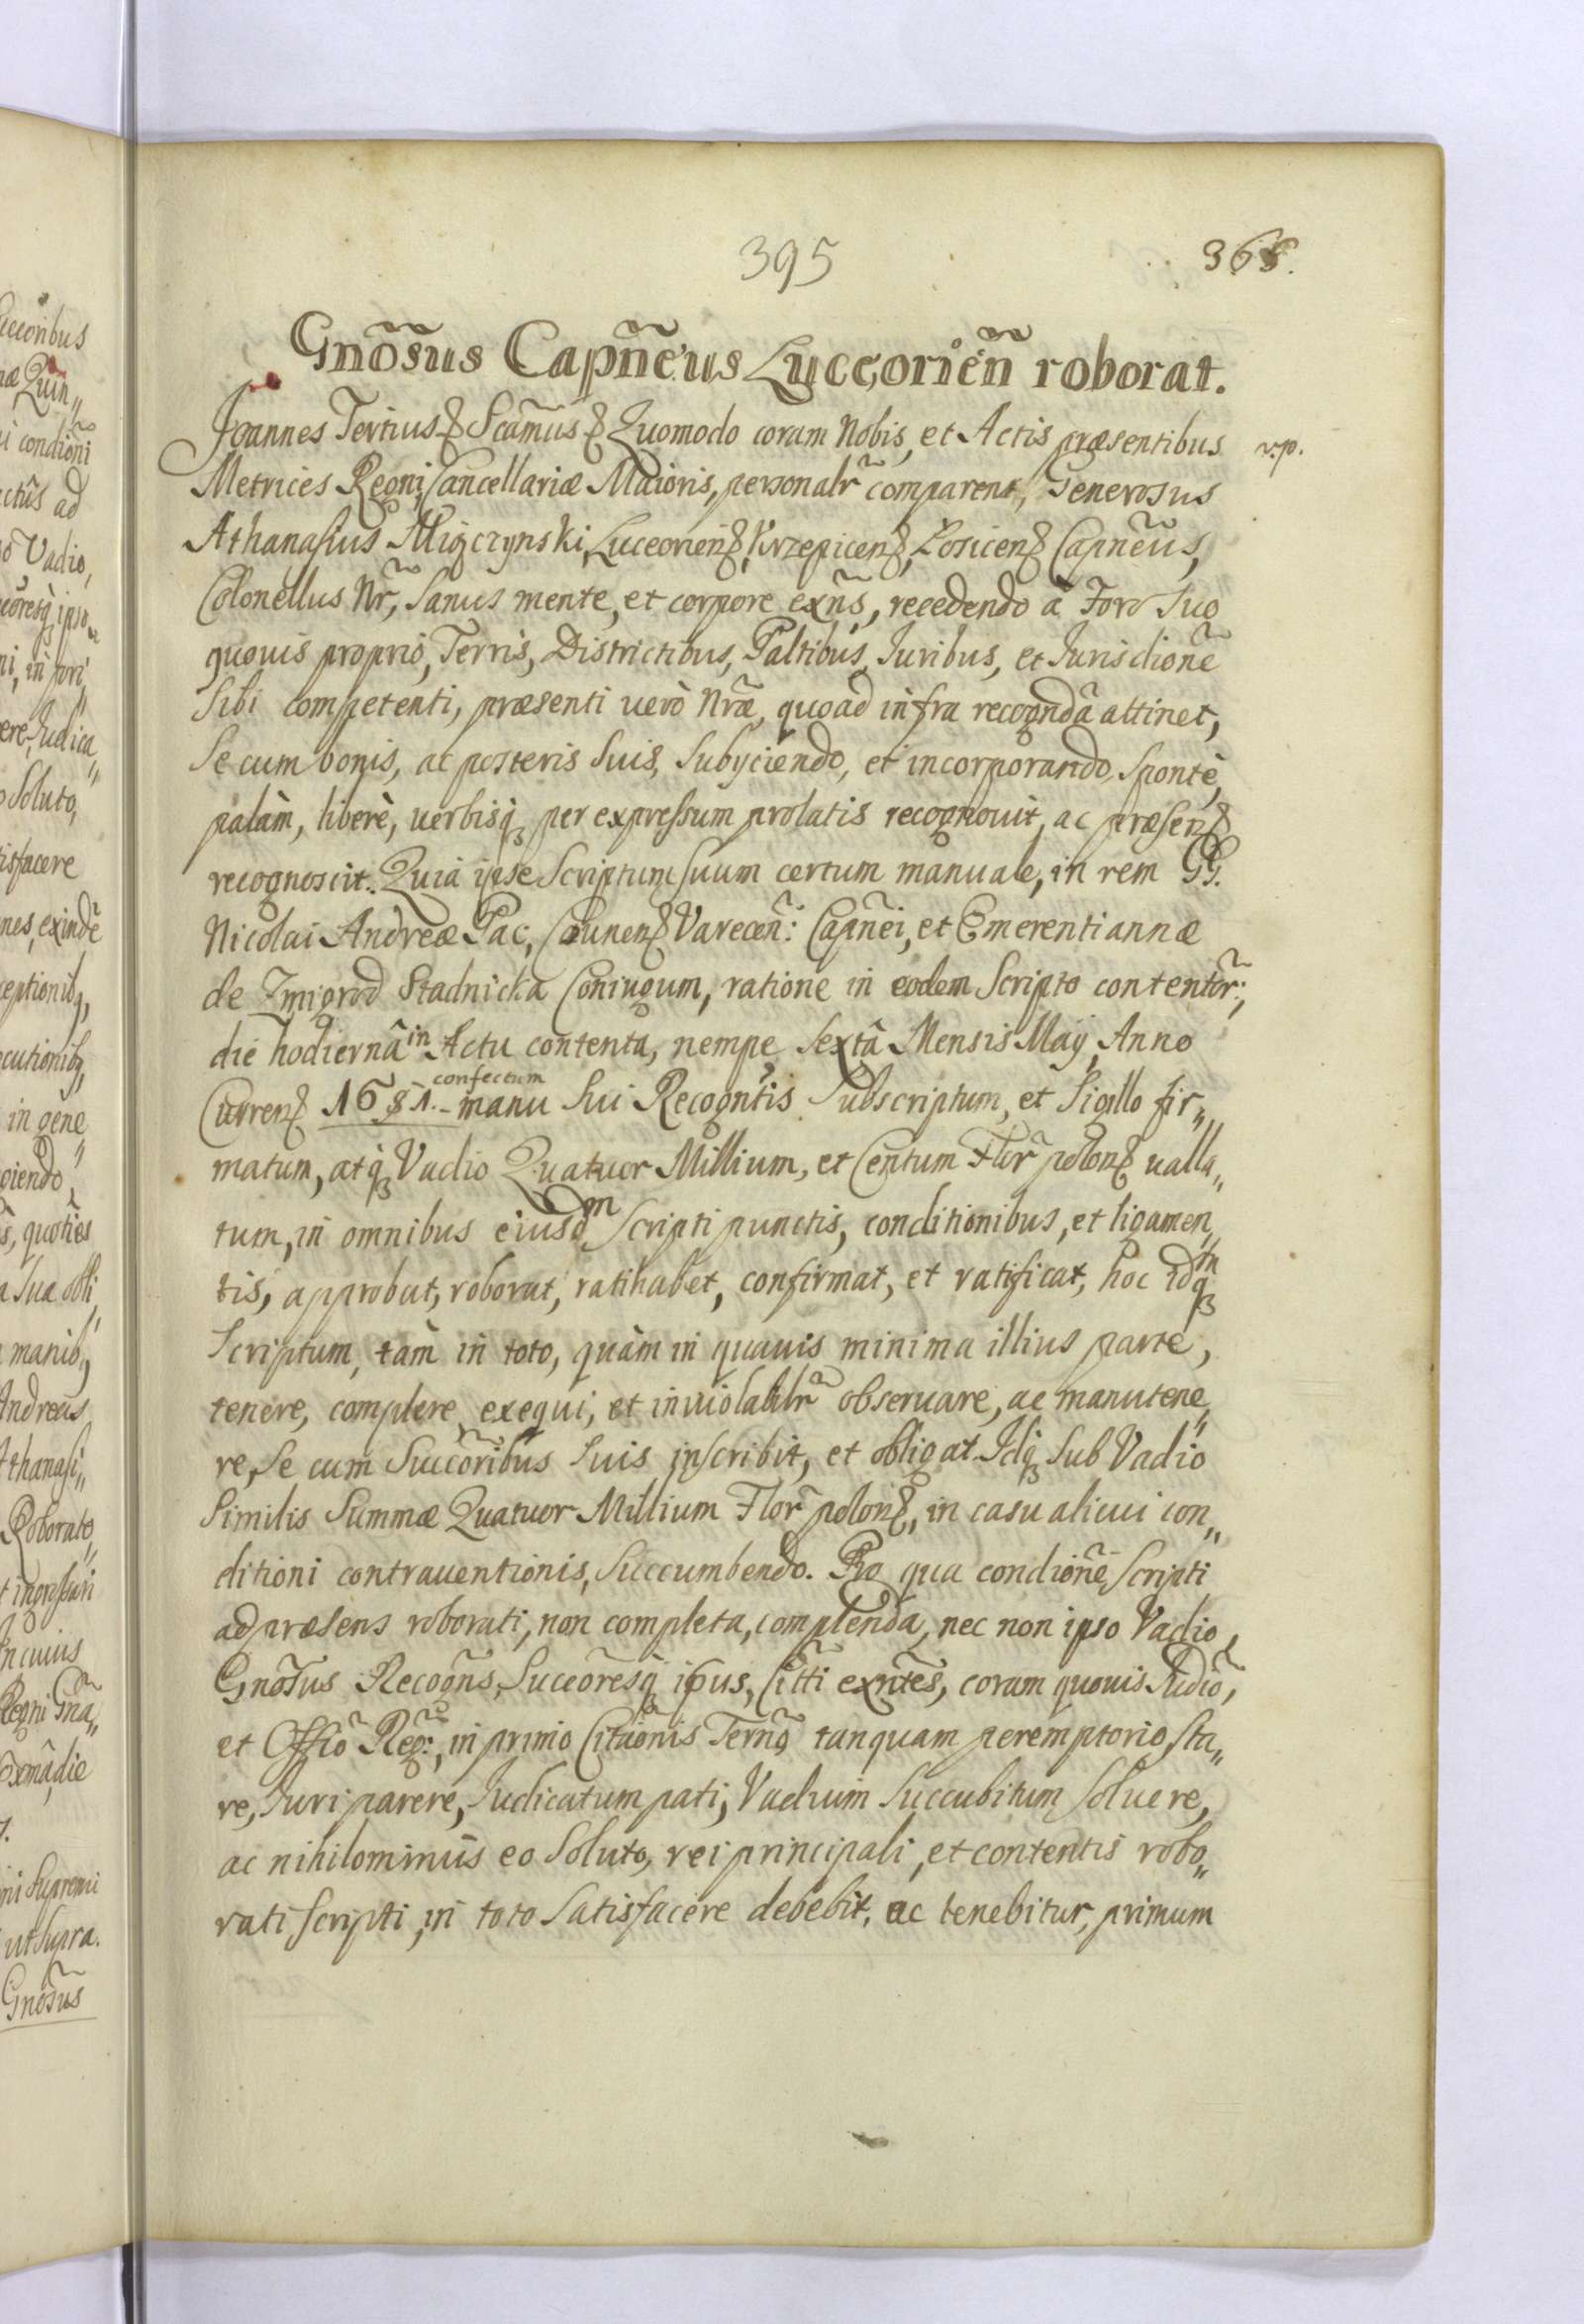 395
365.
Gnõsus Capñeus Luceoriẽn roborat.
Joannes Tertius & Scãmus & Quomodo coram Nobis, et Actis præsentibus
v.p.
Metrices Regni, Cancellariæ Maioris, personalr̃ comparens, Generosus
Athanasius Miączynski, Luceorien̄, Krzepicen̄, Łosicen̄ Capñeus,
Colonellus Nr̃, Sanus mente, et corpore exñs, recedendo à Foro Suo
quouis proprio, Terris, Districtibus, Paltibus, Iuribus, et Iurisdioñe
Sibi competenti, præsenti uerò Nræ̃, quoad infra recogndã attinet,
Se cum bonis, ac posteris Suis, Subijciendo, et incorporando, Spontè,
palàm, liberè, uerbisq́ per expressum prolatis recognouit, ac præsen̄
recognoscit. Quia ipse Scriptum Suum certum manuale, in rem GG.
Nicolai Andreæ Pac, Caunen̄ Varecen̄: Capñei, et Emerentiannæ
de Zmigrod Stadnicka Coniugum, ratione in eodem Scripto contentor̃:,
die hodiernâ in Actu contenta, nempe Sextâ Mensis Maij Anno
Curren̄ 1681. confectum manu Sui Recogñtis Subscriptum, et Sigillo fir„
matum, atq́ Vadio Quatuor Millium, et Centum Flor̃ polon̄ ualla„
tum, in omnibus eiusdm Scripti punctis, conditionibus, et ligamen„
tis, approbat, roborat, ratihabet, confirmat, et ratificat, hoc idq́m
Scriptum, tàm in toto, quàm in quauis minima illius parte,
tenere, complere, exequi, et inuiolabilr̃ obseruare, ac manutene„
re, Se cum Succorĩbus Suis inscribit, et obligat. Idq́ Sub Vadio
Similis Summæ Quatuor Millium Flor̃ polon̄, in casu alicui con„
ditioni contrauentionis, Succumbendo. Pro qua condioñe Scripti
ad præsens roborati, non completa, complenda, nec non ipso Vadio,
Gnõsus Recogñs, Succoresq́ ipus, Citti exñtes, coram quouis Iudiõ,
et Offiõ Reg:, in primo Citaõnis Terno tanquam peremptorio sta„
re, Iuri parere, Iudicatum pati, Vadium Succubitum Soluere,
ac nihilominus eo Soluto, rei principali, et contentis robo„
rati scripti, in toto Satisfacere debebit, ac tenebitur, primum